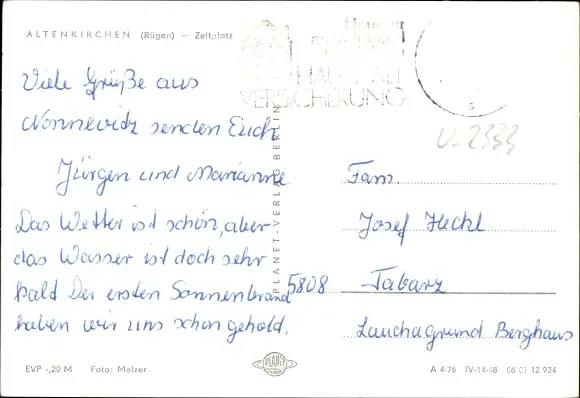 ALTENKIRCHEN (Rügen) — Zeltplatz
HAFTPFLICHT
VERSICHERUNG
U-2333
Viele Grüße aus
Nonnevitz senden Euch
Jürgen und Marianne
Das Wetter ist schön, aber
das Wasser ist doch sehr
kald Der ersten Sonnenbrand
haben wir uns schon gehold.
PLANET-VERLAG BERLIN
Fam.
Josef Heckl
5808 Tabarz
Lauchagrund Berghaus
EVP -,20 M Foto: Melzer
PLANET
A 4/76 IV-14-48 06 01 12 934